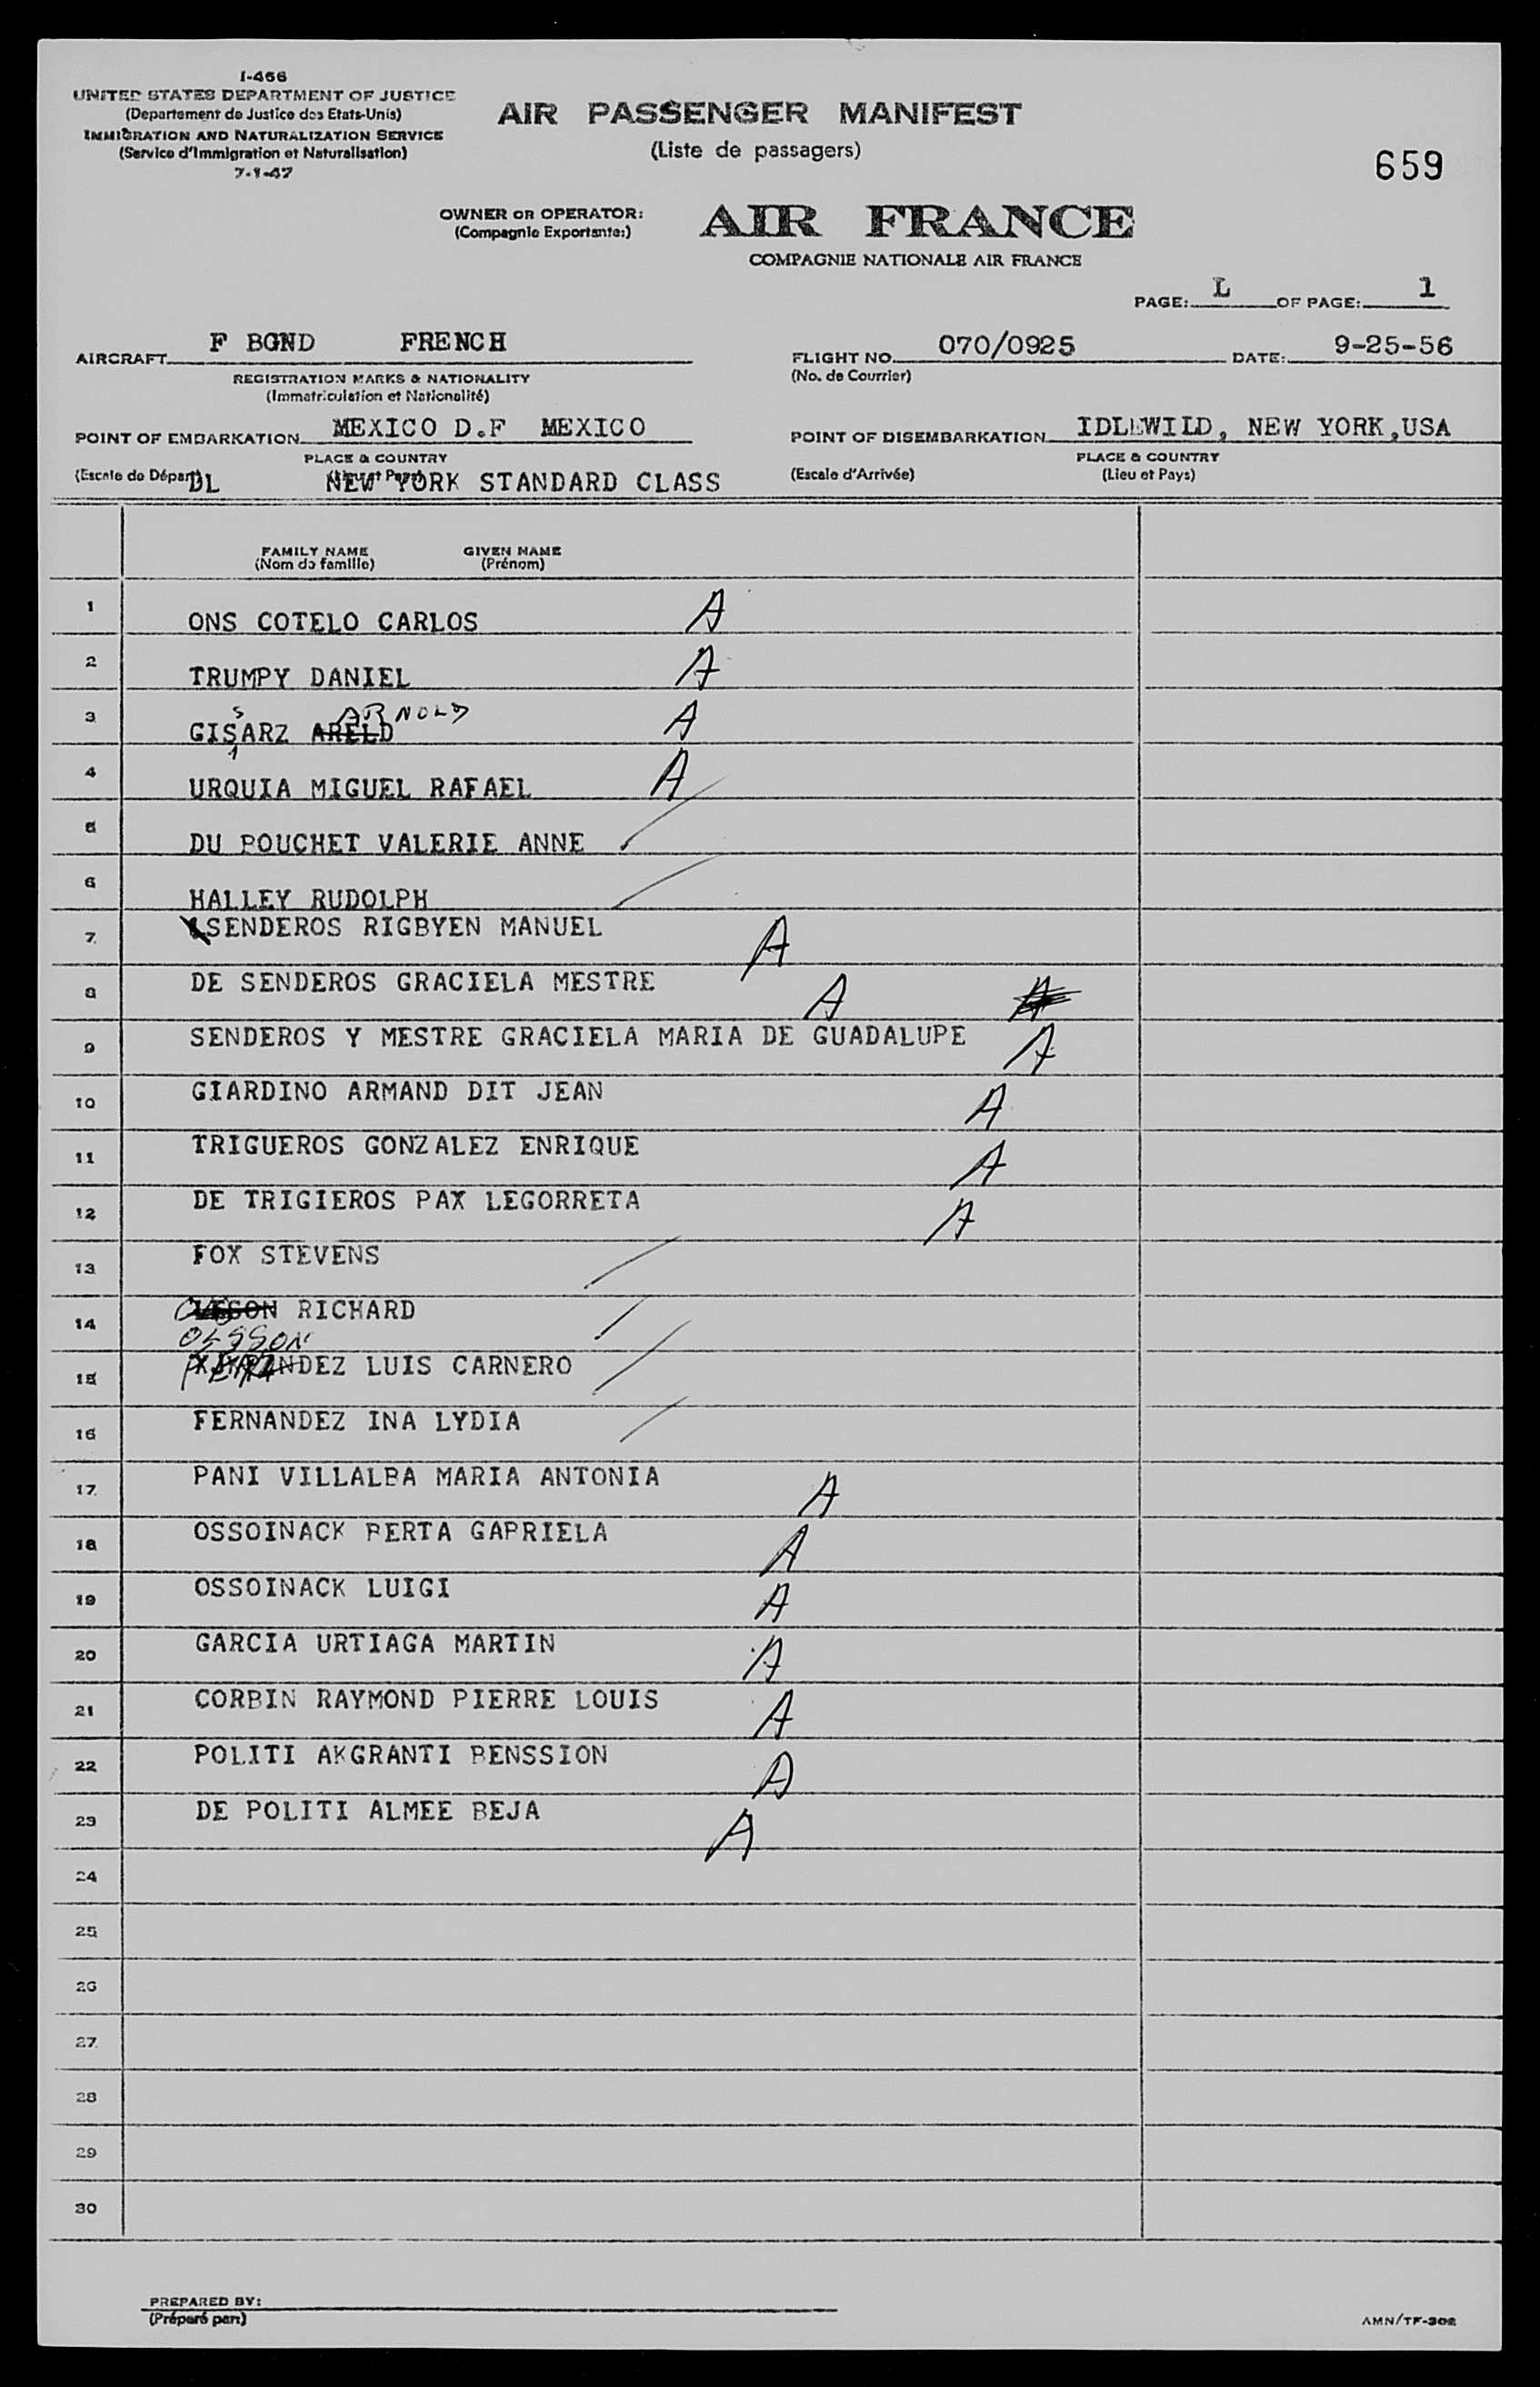 I-466
UNITED STATES DEPARTMENT OF JUSTICE
(Departement de Justice des Etats-Unis)
IMMIGRATION AND NATURALIZATION SERVICE
(Service d'Immigration et Naturalisation)
7-1-47
AIR PASSENGER MANIFEST
(Liste de passagers)
659
OWNER OR OPERATOR: AIR FRANCE
(Compagnie Exportante:)
COMPAGNIE NATIONALE AIR FRANCE
PAGE: L OF PAGE: 1
AIRCRAFT F BGND FRENCH
REGISTRATION MARKS & NATIONALITY
(Immatriculation et Nationalité)
FLIGHT NO. 070/0925 DATE: 9-25-56
(No. de Courrier)
POINT OF EMBARKATION MEXICO D.F MEXICO
PLACE & COUNTRY
(Escale de Départ) DL NEW YORK STANDARD CLASS
POINT OF DISEMBARKATION IDLEWILD, NEW YORK,USA
PLACE & COUNTRY
(Escale d'Arrivée) (Lieu et Pays)
FAMILY NAME GIVEN NAME
(Nom de famille) (Prénom)
1 ONS COTELO CARLOS A
2 TRUMPY DANIEL A
S ARNOLD
3 GISARZ ARELD A
4 URQUIA MIGUEL RAFAEL A
5 DU POUCHET VALERIE ANNE
6 HALLEY RUDOLPH
7 SENDEROS RIGBYEN MANUEL A
8 DE SENDEROS GRACIELA MESTRE A A
9 SENDEROS Y MESTRE GRACIELA MARIA DE GUADALUPE A
10 GIARDINO ARMAND DIT JEAN A
11 TRIGUEROS GONZALEZ ENRIQUE A
12 DE TRIGIEROS PAX LEGORRETA A
13 FOX STEVENS
14 RICHARD
OLSSON
15 LUIS CARNERO
16 FERNANDEZ INA LYDIA
17 PANI VILLALBA MARIA ANTONIA A
18 OSSOINACK BERTA GAPRIELA A
19 OSSOINACK LUIGI A
20 GARCIA URTIAGA MARTIN A
21 CORBIN RAYMOND PIERRE LOUIS A
22 POLITI AKGRANTI BENSSION A
23 DE POLITI ALMEE BEJA A
24
25
26
27
28
29
30
PREPARED BY:
(Préparé par:)
AMN/TF-302